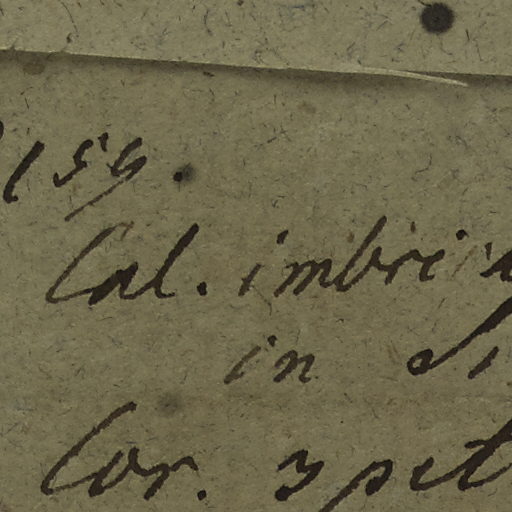 159.
Cal. imbric
in
Cor. 3 pet